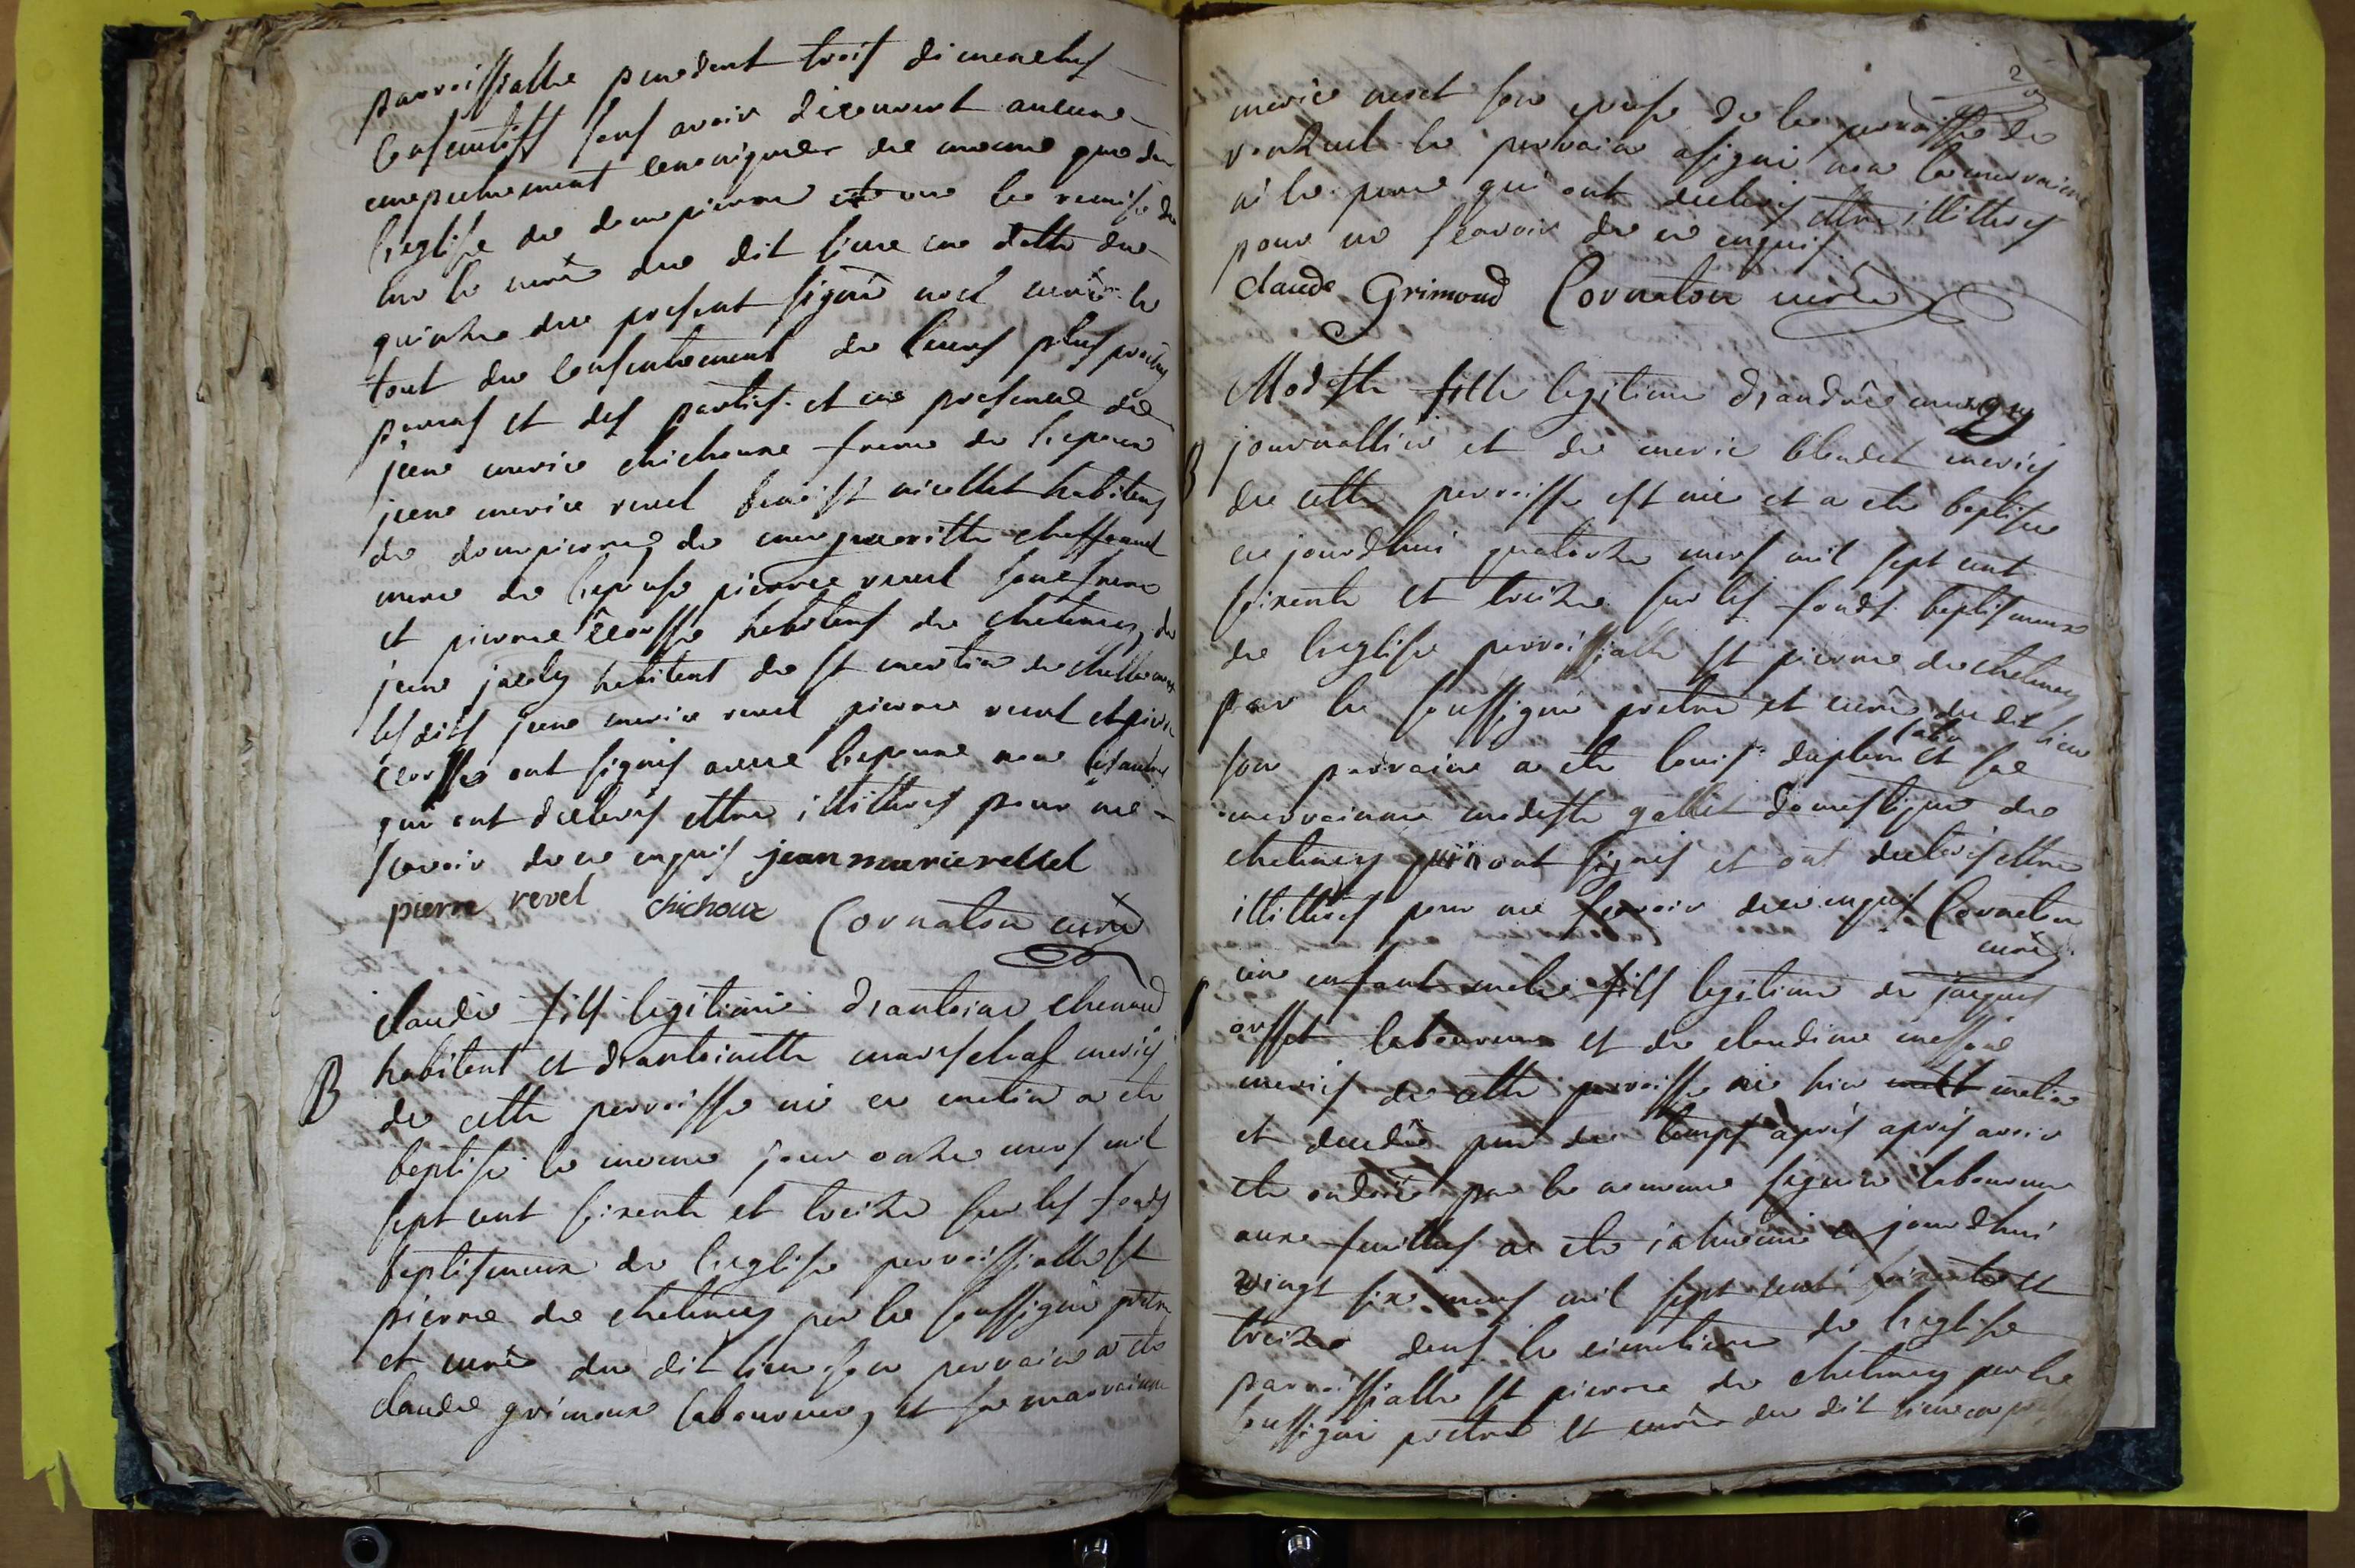 parroissialle pendent trois dimenches
consecutifs sens avoir decouvert aucune
empechement canonique de meme que dens
l'eglise de dompierre
par le curé du dit lieu en datte du
quinze du present signé curé le
tout du consentement de leurs plus proches
parens et des parties et en presence de
jean marie chichoux frere de l'epoux
jean marie revel benoist habitens
de dompierre, de margueritte
mere de l'epouse pierre revel son frere
et pierre habitens de chetenay, de
jean habitent de st martin de
lesdits jean marie revel pierre revel et pierre
ont signés avec l'epoux non les autres
qui ont declarés ettre illitterés pour ne
scavoir de ce enquis jean marie revel
pierre revel chichoux Cornaton curé
claude fils legitime d'antoine chenaud
B habitent et d'antoinette mariés
de cette parroisse né ce matin a ete
baptisé le meme jour onze mars mil
sept cent soixente et treize sur les fonds
baptismeaux de l'eglise parroissialle st
pierre de chetenay par le soussigné pretre
et curé du dit lieu son parrain a ete
claude grimoux laboureur, et sa marrainne
2
marie son epouse de la parroisse de
le parrain a signé non la marrainne
ni le pere qui ont declarés ettre illitterés
pour ne scavoir de ce enquis.
claude Grimoud Cornaton curé
Modeste fille legitime d'andré
B journallier et de marie blondet mariés
de cette parroisse est née et a ete baptisée
ce jourd'hui quatorze mars mil sept cent
soixente et treize sur les fonds baptismeaux
de l'eglise parroissialle st pierre de chetenay
par le soussigné pretre et curé du dit lieu
son parrain a ete louis et sa
marrainne modeste domestique de
chetenay qui n'ont signés et ont declarés ettre
illitterés pour ne scavoir de ce enquis Cornaton
curé
un enfant male fils legitime de jacques
laboureur et de claudine
mariés de cette parroisse né hier matin
et decedé peu de temps après après avoir
ete ondoié par le nommé laboureur
aux feuilles a ete inhumé ce jourd'hui
vingt six mars mil sept cent soixente et
treize dens le cimetiere de l'eglise
parroissialle st pierre de chetenay par le
soussigné pretre et curé du dit lieu en